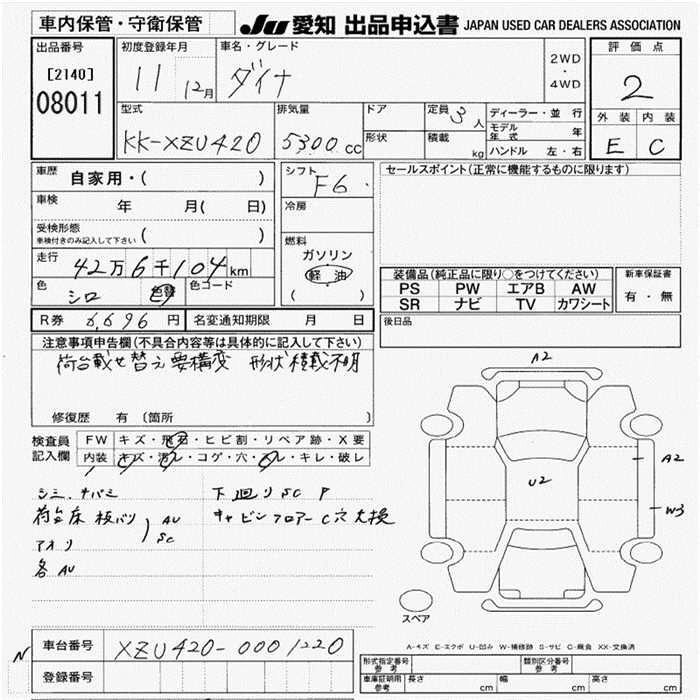 車内保管・守衛保管 JU 愛知 出品申込書 JAPAN USED CAR DEALERS ASSOCIATION
出品番号 初度登録年月 車名・グレード 2WD・4WD 評価点
[2140] 08011 11 12月 ダイナ 2
型式 排気量 ドア 定員 3人 ディーラー・並行 外装 内装
KK-XZU420 5300cc 形状 積載 kg モデル年式 年 E C
ハンドル 左・右
車歴 自家用・( ) シフト F6 セールスポイント(正常に機能するものに限ります)
車検 年 月( 日) 冷房
受検形態 ( )
車検付きのみ記入して下さい
燃料
ガソリン
軽油
( )
走行 42万6千104km
色 シロ 色替 色コード
装備品(純正品に限り○をつけてください) 新車保証書
PS PW エアB AW 有・無
SR ナビ TV カワシート
R券 6,696円 名変通知期限 月 日 後日品
注意事項申告欄(不具合内容等は具体的に記入して下さい)
荷台載せ替え要構変 形状積載不明
修復歴 有 (箇所 )
検査員記入欄 FW キズ・飛石・ヒビ割・リペア跡・X要
内装 キズ・汚レ・コゲ・穴・スレ・キレ・破レ
下廻りSC P
荷台床板バリ AU
SC
キャビンフロアーC穴大損
アオリ
各AU
A2
U2
A2
W3
スペア
A-キズ E-エクボ U-凹み W-補修跡 S-サビ C-腐食 XX-交換済
N 車台番号 XZU420-0001220
登録番号
形式指定番号 参考 類別区分番号 参考
車庫証明用 参考 長さ cm 幅 cm 高さ cm